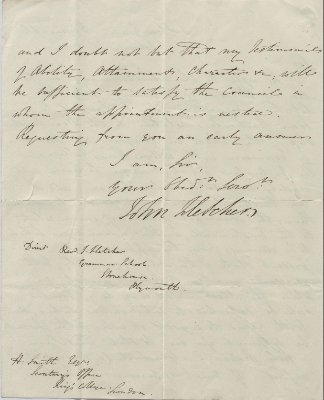 and I doubt not but that my Testimonials
of Ability, Attainments, Character &c, will
be sufficient to satisfy the Councils in
whom the appointment is vested.
Requesting from you an early answer
I am, Sir,
Your Obedt. Servt.
John Fletcher
Direct Revd. J. Fletcher
Grammar School
Stonehouse
Plymouth.
H. Smith Esqr.
Secretary's Office
King's College
London.